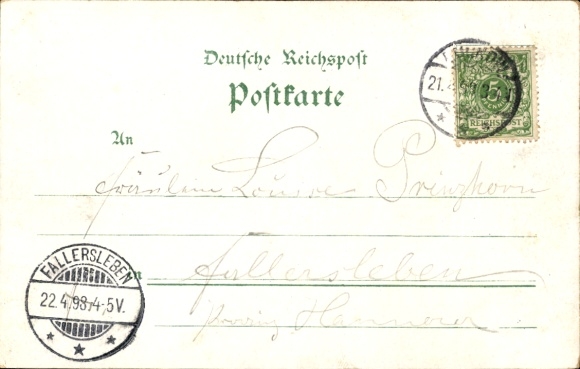 Deutsche Reichspost
Postkarte
5
REICHSPOST
21.4
An
Fräulein Louise Prinzhorn
in
Fallersleben
Provinz Hannover
FALLERSLEBEN
22.4.98.4-5V.